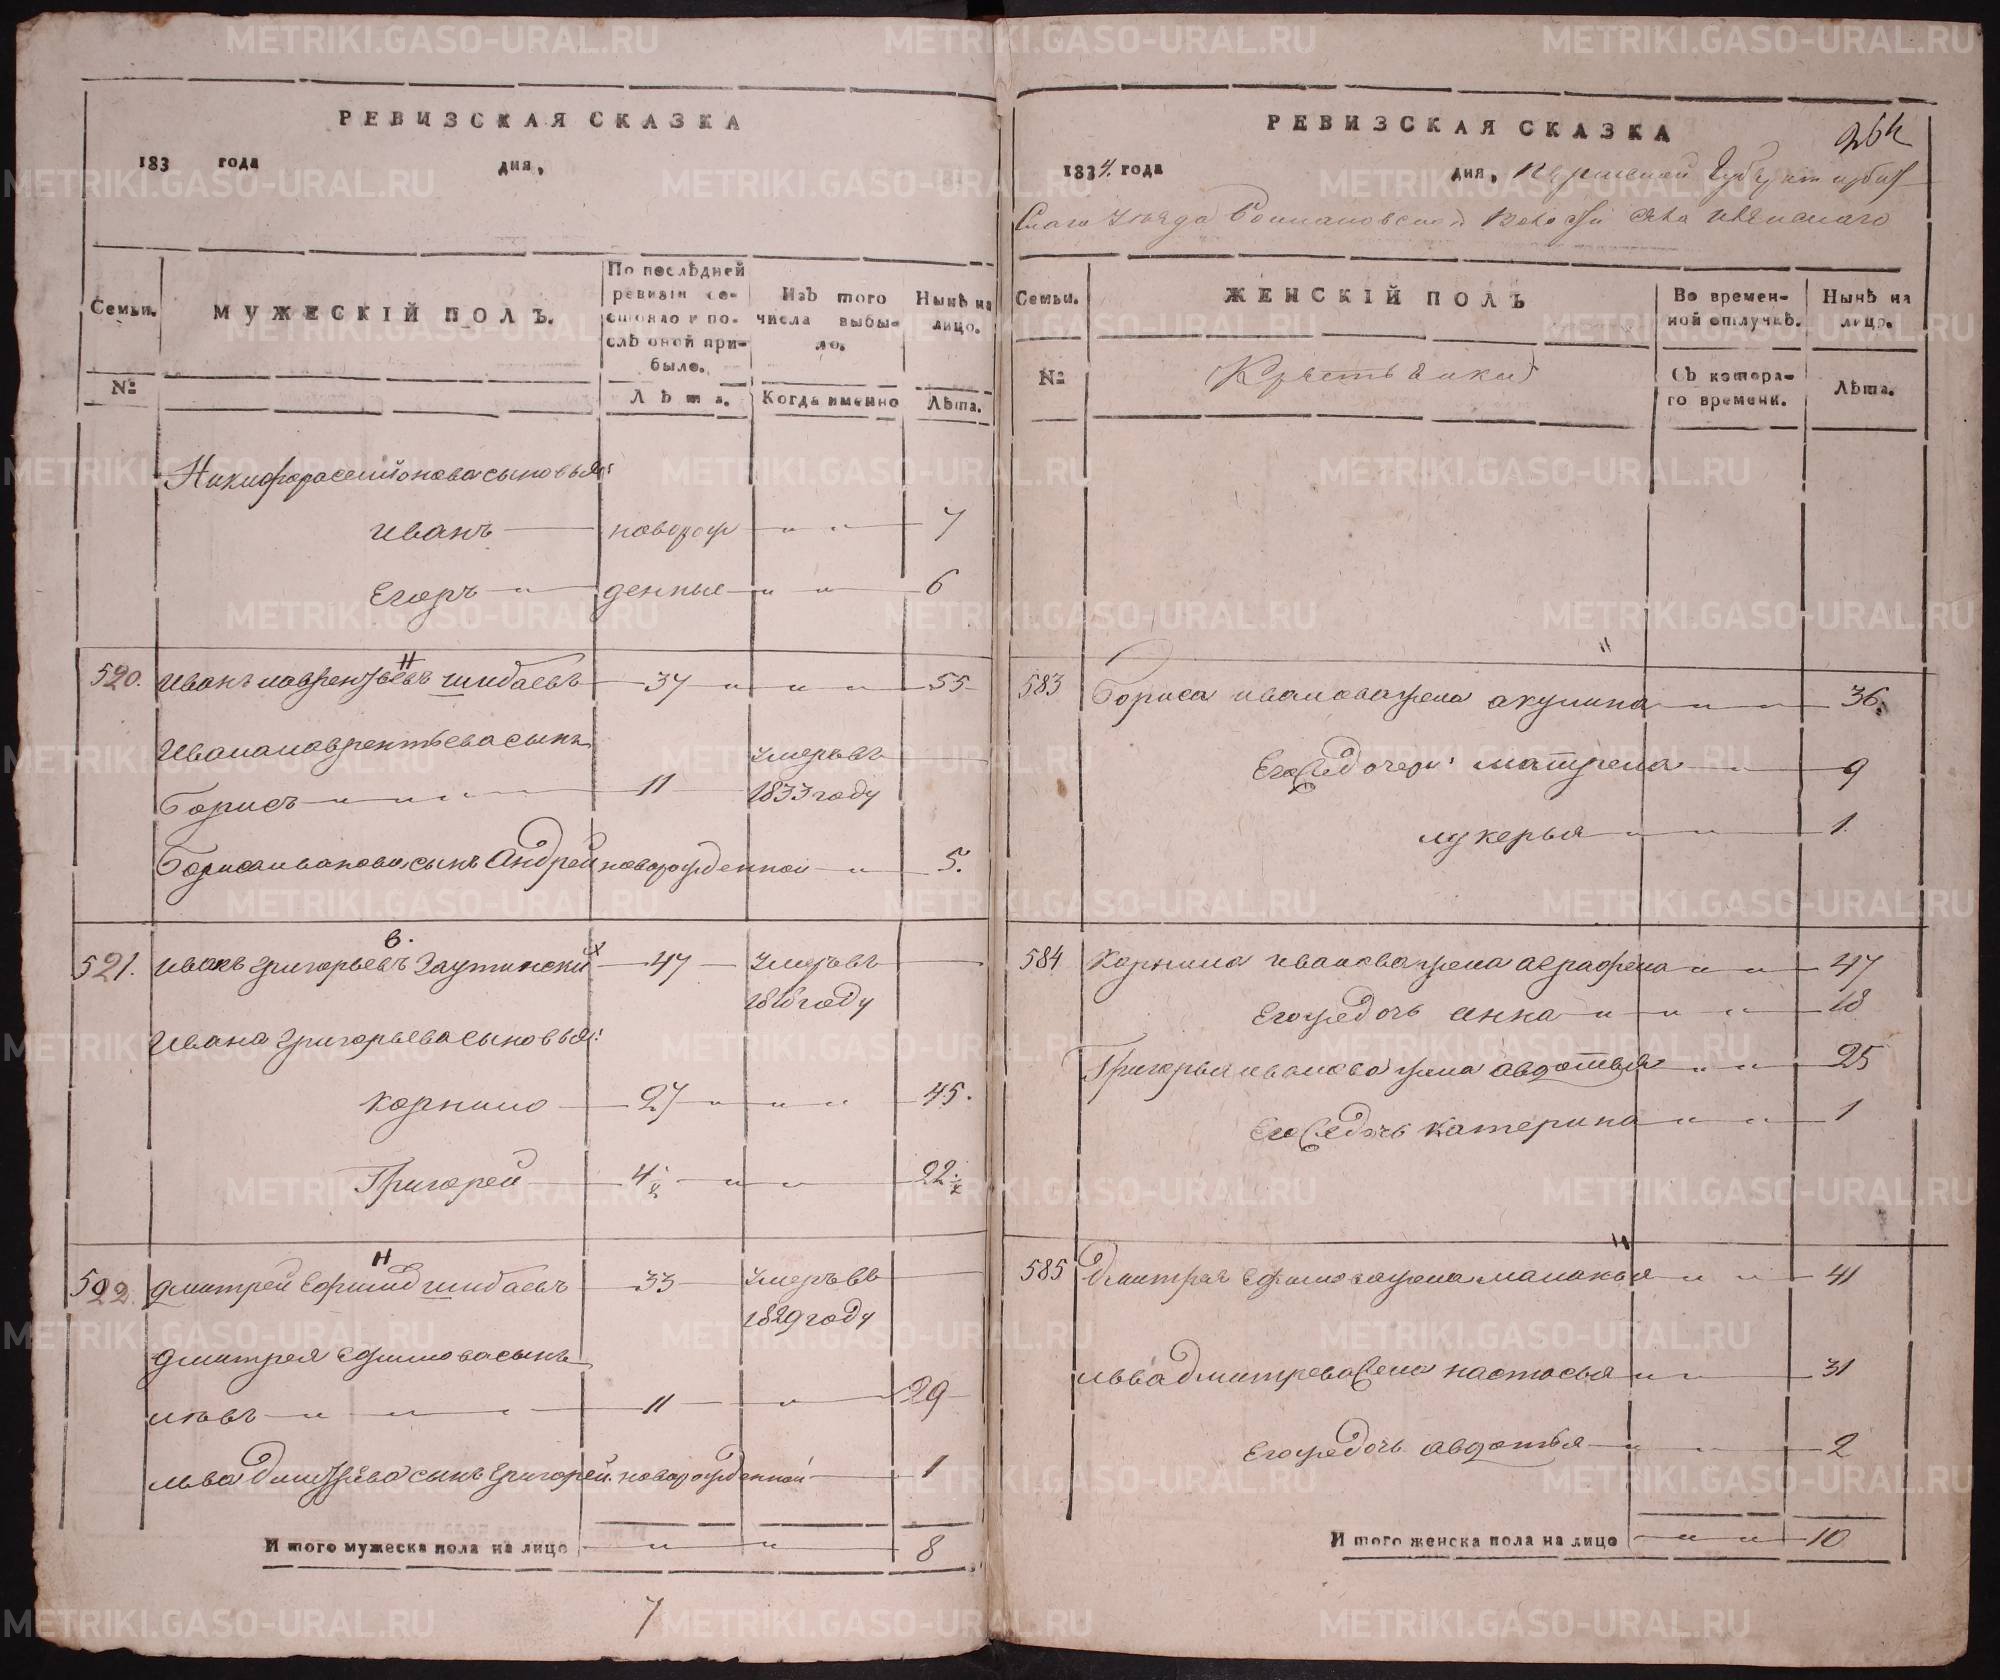 РЕВИЗСКАЯ СКАЗКА
183 года дня,
Семьи. МУЖЕСКІЙ ПОЛЪ. По послѣдней ревизіи состояло и послѣ оной прибыло. Изъ того числа выбыло. Нынѣ на лицо.
№ Лѣта. Когда именно Лѣта.
Никифора Семионова сыновья:
Иванъ новорож " " 7
Егоръ " денные " " 6
Н
520. Иванъ Лаврентьевъ Шибаевъ 37 " " " 55
Ивана Лаврентьева сынъ Умеръ въ
Борисъ " " " " 11 1833 году
Бориса Иванова сынъ Андрей новорожденной " 5.
В.
521. Иванъ Григорьевъ Заутинский 47 Умеръ въ
1816 году
Ивана Григорьева сыновья:
Корнило 27 " " " 45.
Григорей 4 ½ " " 22 ½
Н
522. Дмитрей Ефимов Шибаевъ 33 Умеръ въ
1829 году
Дмитрея Ефимова сынъ
Левъ " " " " 11 " 29
Льва Дмитрева сынъ Григорей новорожденной 1
И того мужеска пола на лицо " " 8
7
РЕВИЗСКАЯ СКАЗКА
1834. года дня, Пермской Губерни Ирбит
скаго Уезда волости села
Семьи. ЖЕНСКІЙ ПОЛЪ Во временной отлучкѣ. Нынѣ на лицо.
№ (Крестьянки) Съ котораго времени. Лѣта.
"
583 Бориса Иванова жена Акулина " " 36.
Его же дочери: Матрена " 9
Лукерья " " 1.
584 Корнила Иванова жена Аграфена " " 47
Его же дочь Анна " " " 18
Григорья Иванова жена Авдотья " " 25
Его же дочь Катерина " " 1
"
585 Дмитрея Ефимова жена Маланья " " 41
Льва Дмитрева жена Настасья " " 31
Его же дочь Авдотья " " " 2
И того женска пола на лицо " " 10